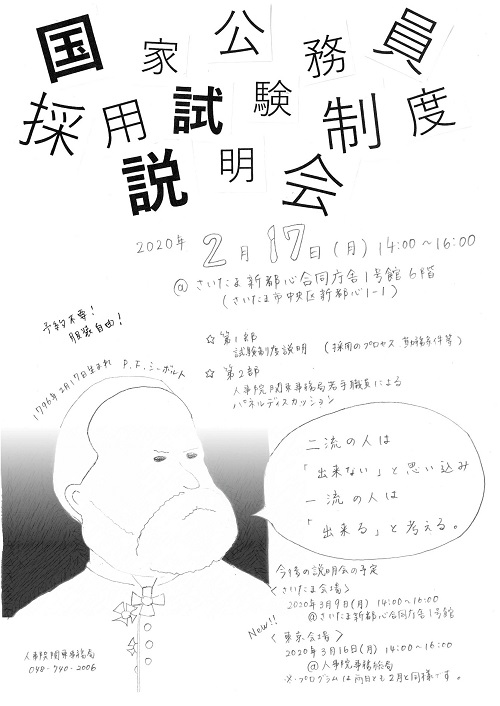 国家公務員
採用試験制度
説明会
2020年 2月17日(月) 14:00〜16:00
@ さいたま新都心合同庁舎1号館6階
(さいたま市中央区新都心1-1)
予約不要!
服装自由!
☆ 第1部
試験制度説明 (採用のプロセス 勤務条件等)
☆ 第2部
人事院関東事務局若手職員による
パネルディスカッション
1796年2月17日生まれ P.F.シーボルト
二流の人は
「出来ない」と思い込み
一流の人は
「出来る」と考える。
今後の説明会の予定
<さいたま会場>
2020年3月9日(月) 14:00〜16:00
@さいたま新都心合同庁舎1号館
New!!
<東京会場>
2020年3月16日(月) 14:00〜16:00
@人事院事務総局
※プログラムは両日とも2月と同様です。
人事院関東事務局
048-740-2006